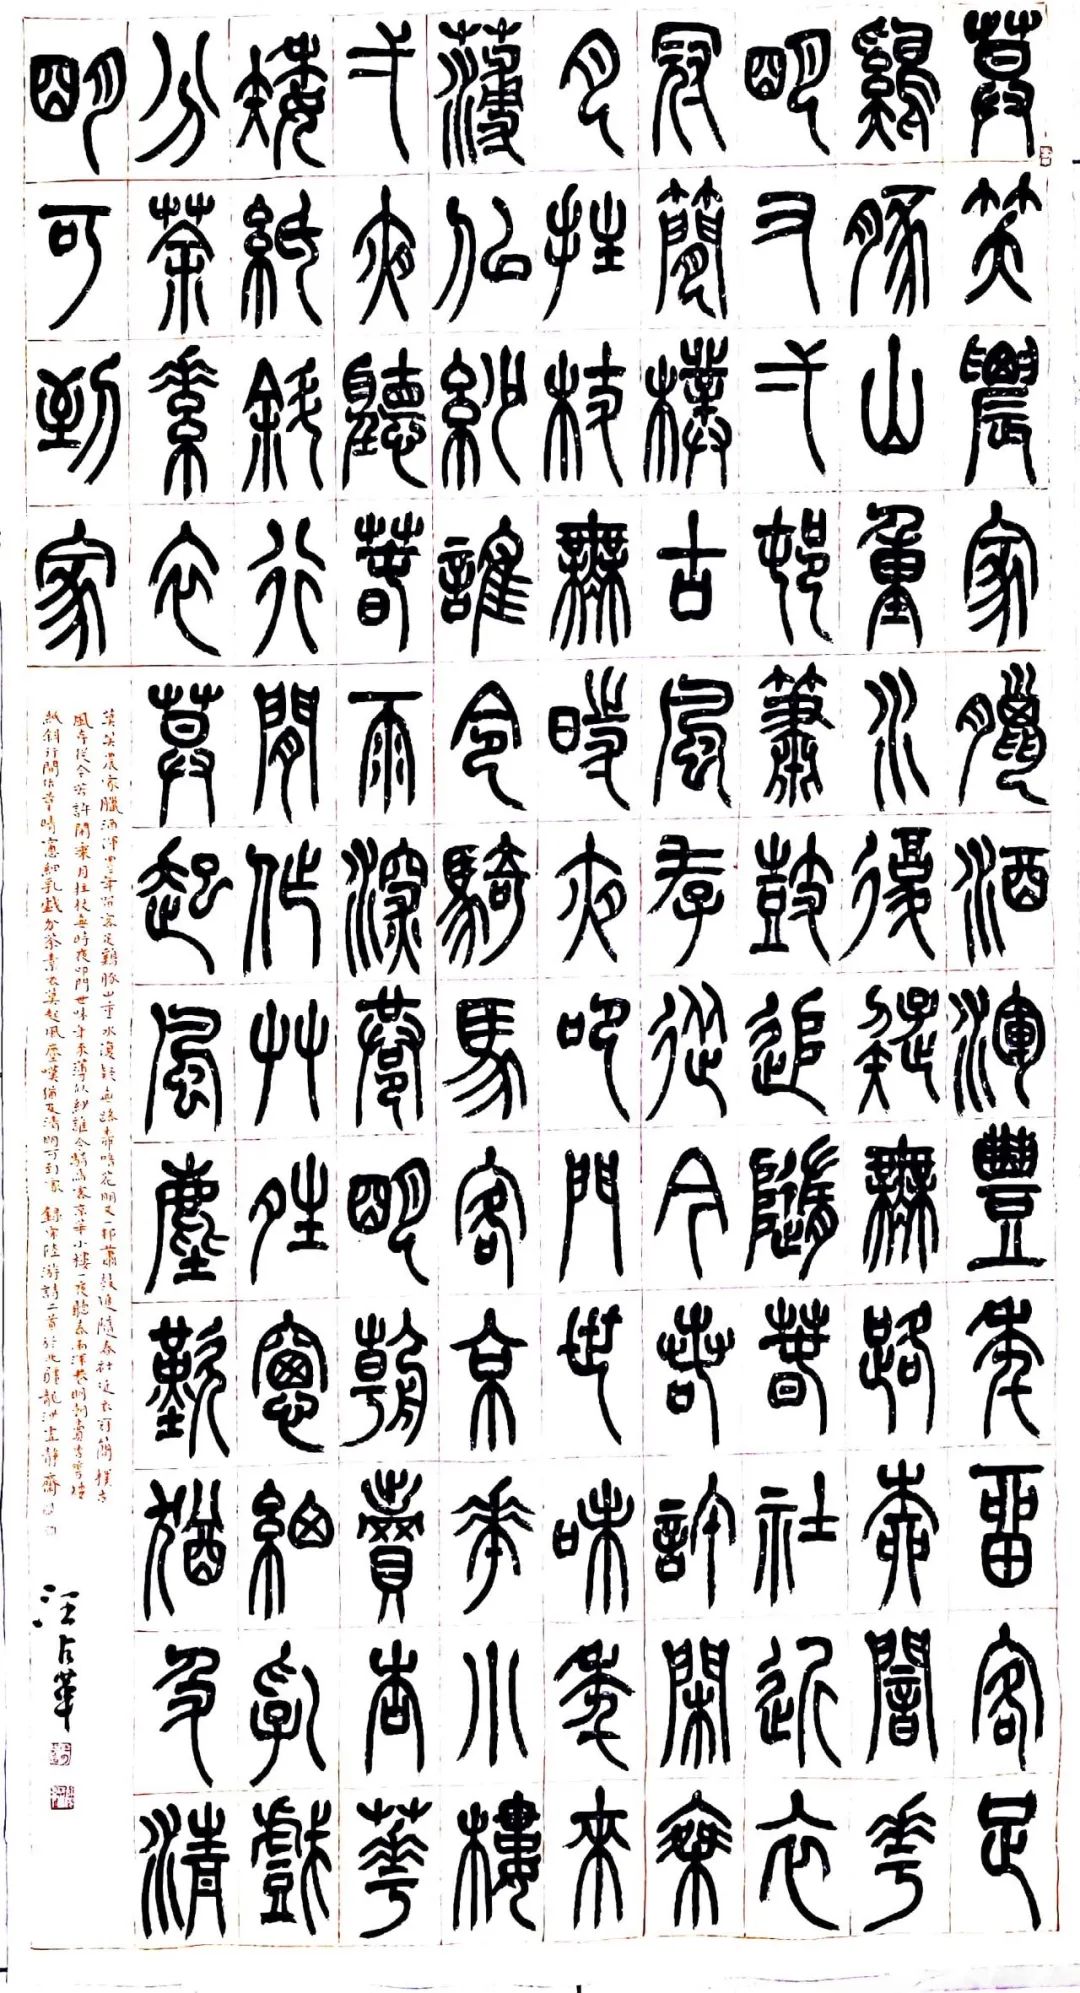 莫笑農家臘酒渾豐年留客足
雞豚山重水復疑無路柳闇華
明又弌邨簫鼓追隨春社近衣
冠簡樸古風存從今若許閑乘
月拄杖無時夜叩門世味年來
薄似紗誰令騎馬客京華小樓
弌夜聽春雨深巷明朝賣杏華
矮紙斜行閒作草晴窗細乳戲
分茶素衣莫起風塵歎猶及清
明可到家
莫笑農家臘酒渾豐年留客足雞豚山重水復疑無路柳暗花明又一邨簫鼓追隨春社近衣冠簡樸古
風存從今若許閑乘月拄杖無時夜叩門世味年來薄似紗誰令騎馬客京華小樓一夜聽春雨深巷明朝賣杏花矮
紙斜行閒作草晴窗細乳戲分茶素衣莫起風塵嘆猶及清明可到家 錄宋陸游詩二首於北 龍 靜齋
汪占華